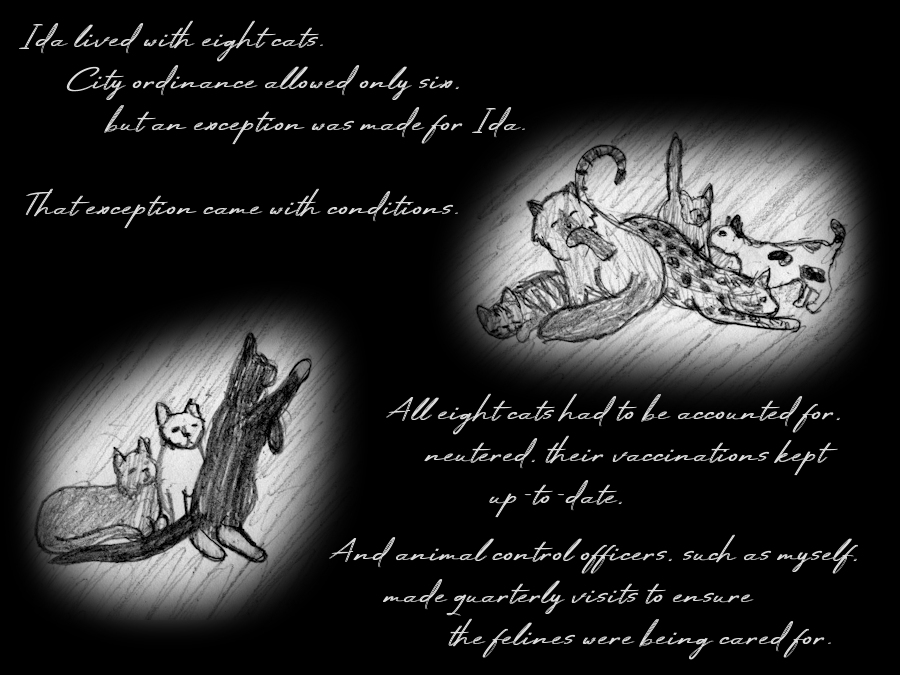 Ida lived with eight cats.
City ordinance allowed only six.
but an exception was made for Ida.
That exception came with conditions.
All eight cats had to be accounted for.
neutered. their vaccinations kept
up-to-date.
And animal control officers. such as myself.
made quarterly visits to ensure
the felines were being cared for.